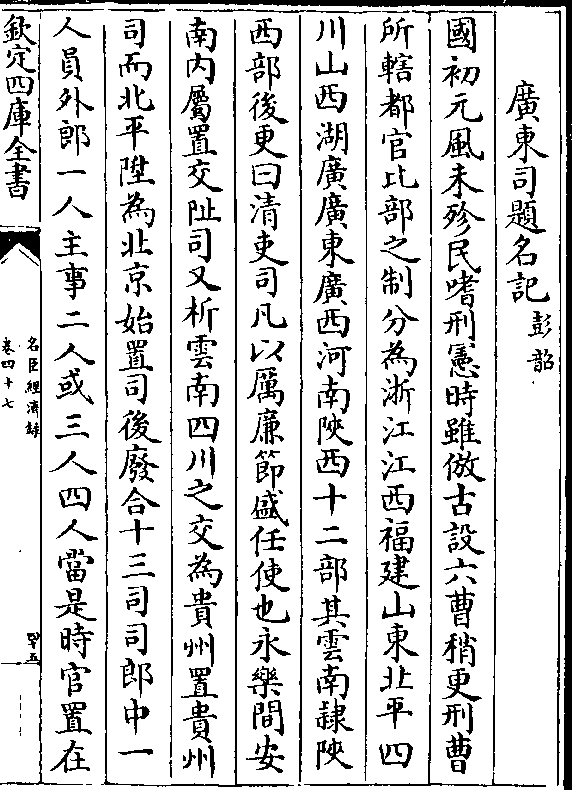 廣東司題名記彭韶
國初元風未殄民嗜刑憲時雖倣古設六曹稍更刑曹
所轄都官比部之制分為浙江江西福建山東北平四
川山西湖廣廣東廣西河南陜西十二部其雲南隷陜
西部後更曰清吏司凡以厲廉節盛任使也永樂間安
南内屬置交阯司又析雲南四川之交為貴州置貴州
司而北平陞為北京始置司後廢合十三司司郎中一
人員外郎一人主事二人或三人四人當是時官置在
欽定四庫全書
名臣經濟録
卷四十七
四十五